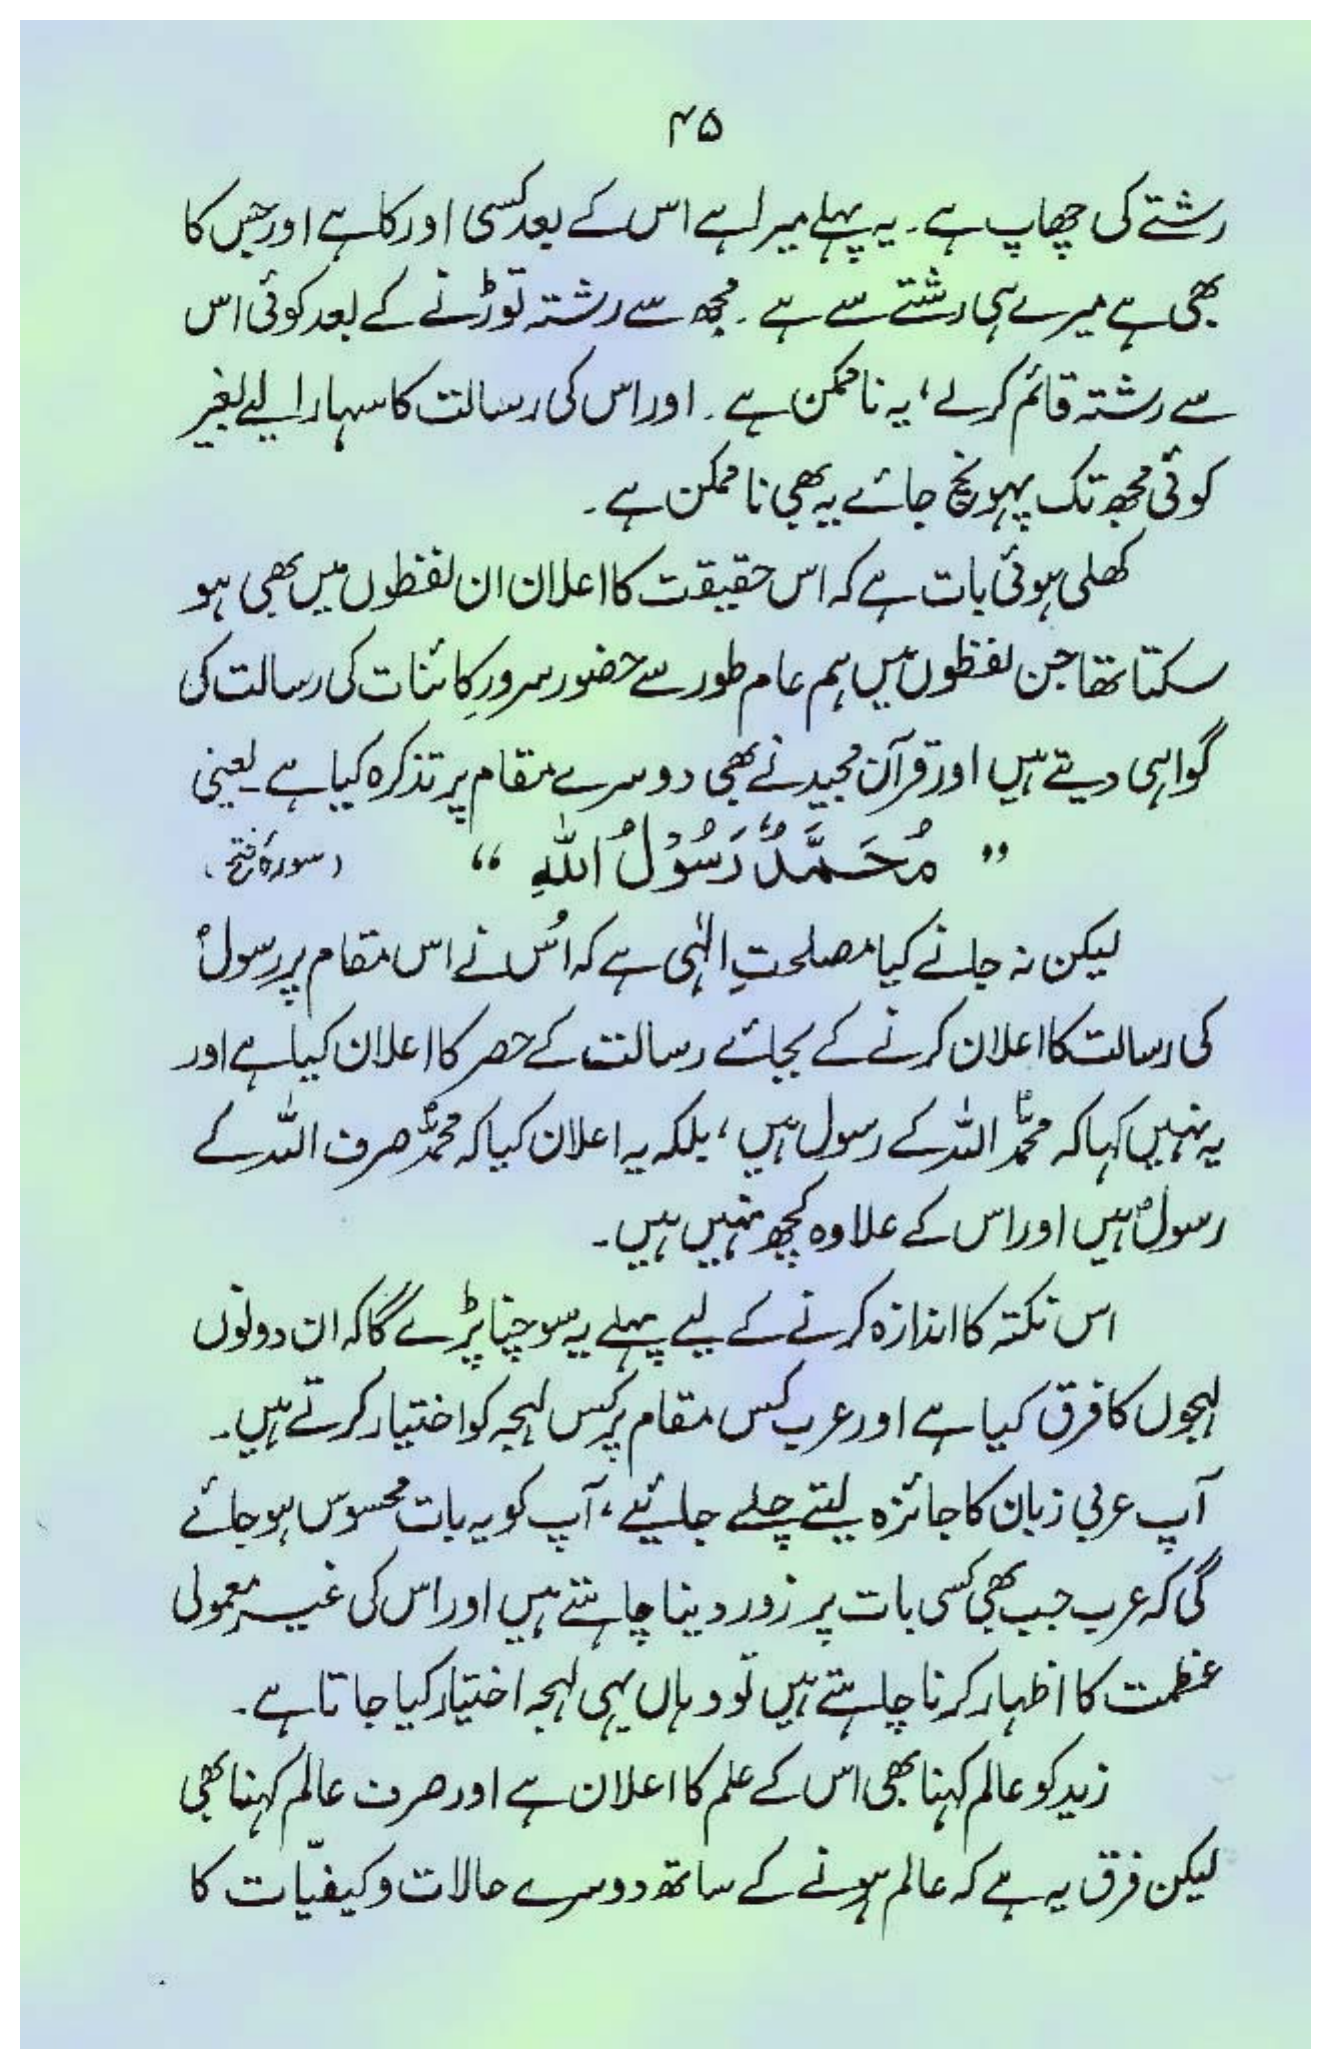 ۴۵
رشتے کی چھاپ ہے۔ یہ پہلے میرا ہے اس کے بعد کسی اور کا ہے اور جس کا
بھی ہے میرے ہی رشتے سے ہے۔ مجھ سے رشتہ توڑنے کے بعد کوئی اس
سے رشتہ قائم کرلے، یہ ناممکن ہے۔ اور اس کی رسالت کا سہارا لیے بغیر
کوئی مجھ تک پہونچ جائے یہ بھی ناممکن ہے۔
کھلی ہوئی بات ہے کہ اس حقیقت کا اعلان ان لفظوں میں بھی ہو
سکتا تھا جن لفظوں میں ہم عام طور سے حضور سرورِ کائنات کی رسالت کی
گواہی دیتے ہیں اور قرآن مجید نے بھی دوسرے مقام پر تذکرہ کیا ہے۔ یعنی
”مُحَمَّدٌ رَسُوْلُ اللہِ“ (سورۂ فتح)
لیکن نہ جانے کیا مصلحتِ الٰہی ہے کہ اُس نے اس مقام پر رسولؐ
کی رسالت کا اعلان کرنے کے بجائے رسالت کے حصر کا اعلان کیا ہے اور
یہ نہیں کہا کہ محمدؐ اللہ کے رسول ہیں، بلکہ یہ اعلان کیا کہ محمدؐ صرف اللہ کے
رسولؐ ہیں اور اس کے علاوہ کچھ نہیں ہیں۔
اس نکتہ کا اندازہ کرنے کے لیے پہلے یہ سوچنا پڑے گا کہ ان دونوں
لہجوں کا فرق کیا ہے اور عرب کس مقام پر کس لہجہ کو اختیار کرتے ہیں۔
آپ عربی زبان کا جائزہ لیتے چلے جائیے، آپ کو یہ بات محسوس ہو جائے
گی کہ عرب جب بھی کسی بات پر زور دینا چاہتے ہیں اور اس کی غیر معمولی
عظمت کا اظہار کرنا چاہتے ہیں تو وہاں یہی لہجہ اختیار کیا جاتا ہے۔
زید کو عالم کہنا بھی اس کے علم کا اعلان ہے اور صرف عالم کہنا بھی
لیکن فرق یہ ہے کہ عالم ہونے کے ساتھ دوسرے حالات و کیفیّات کا